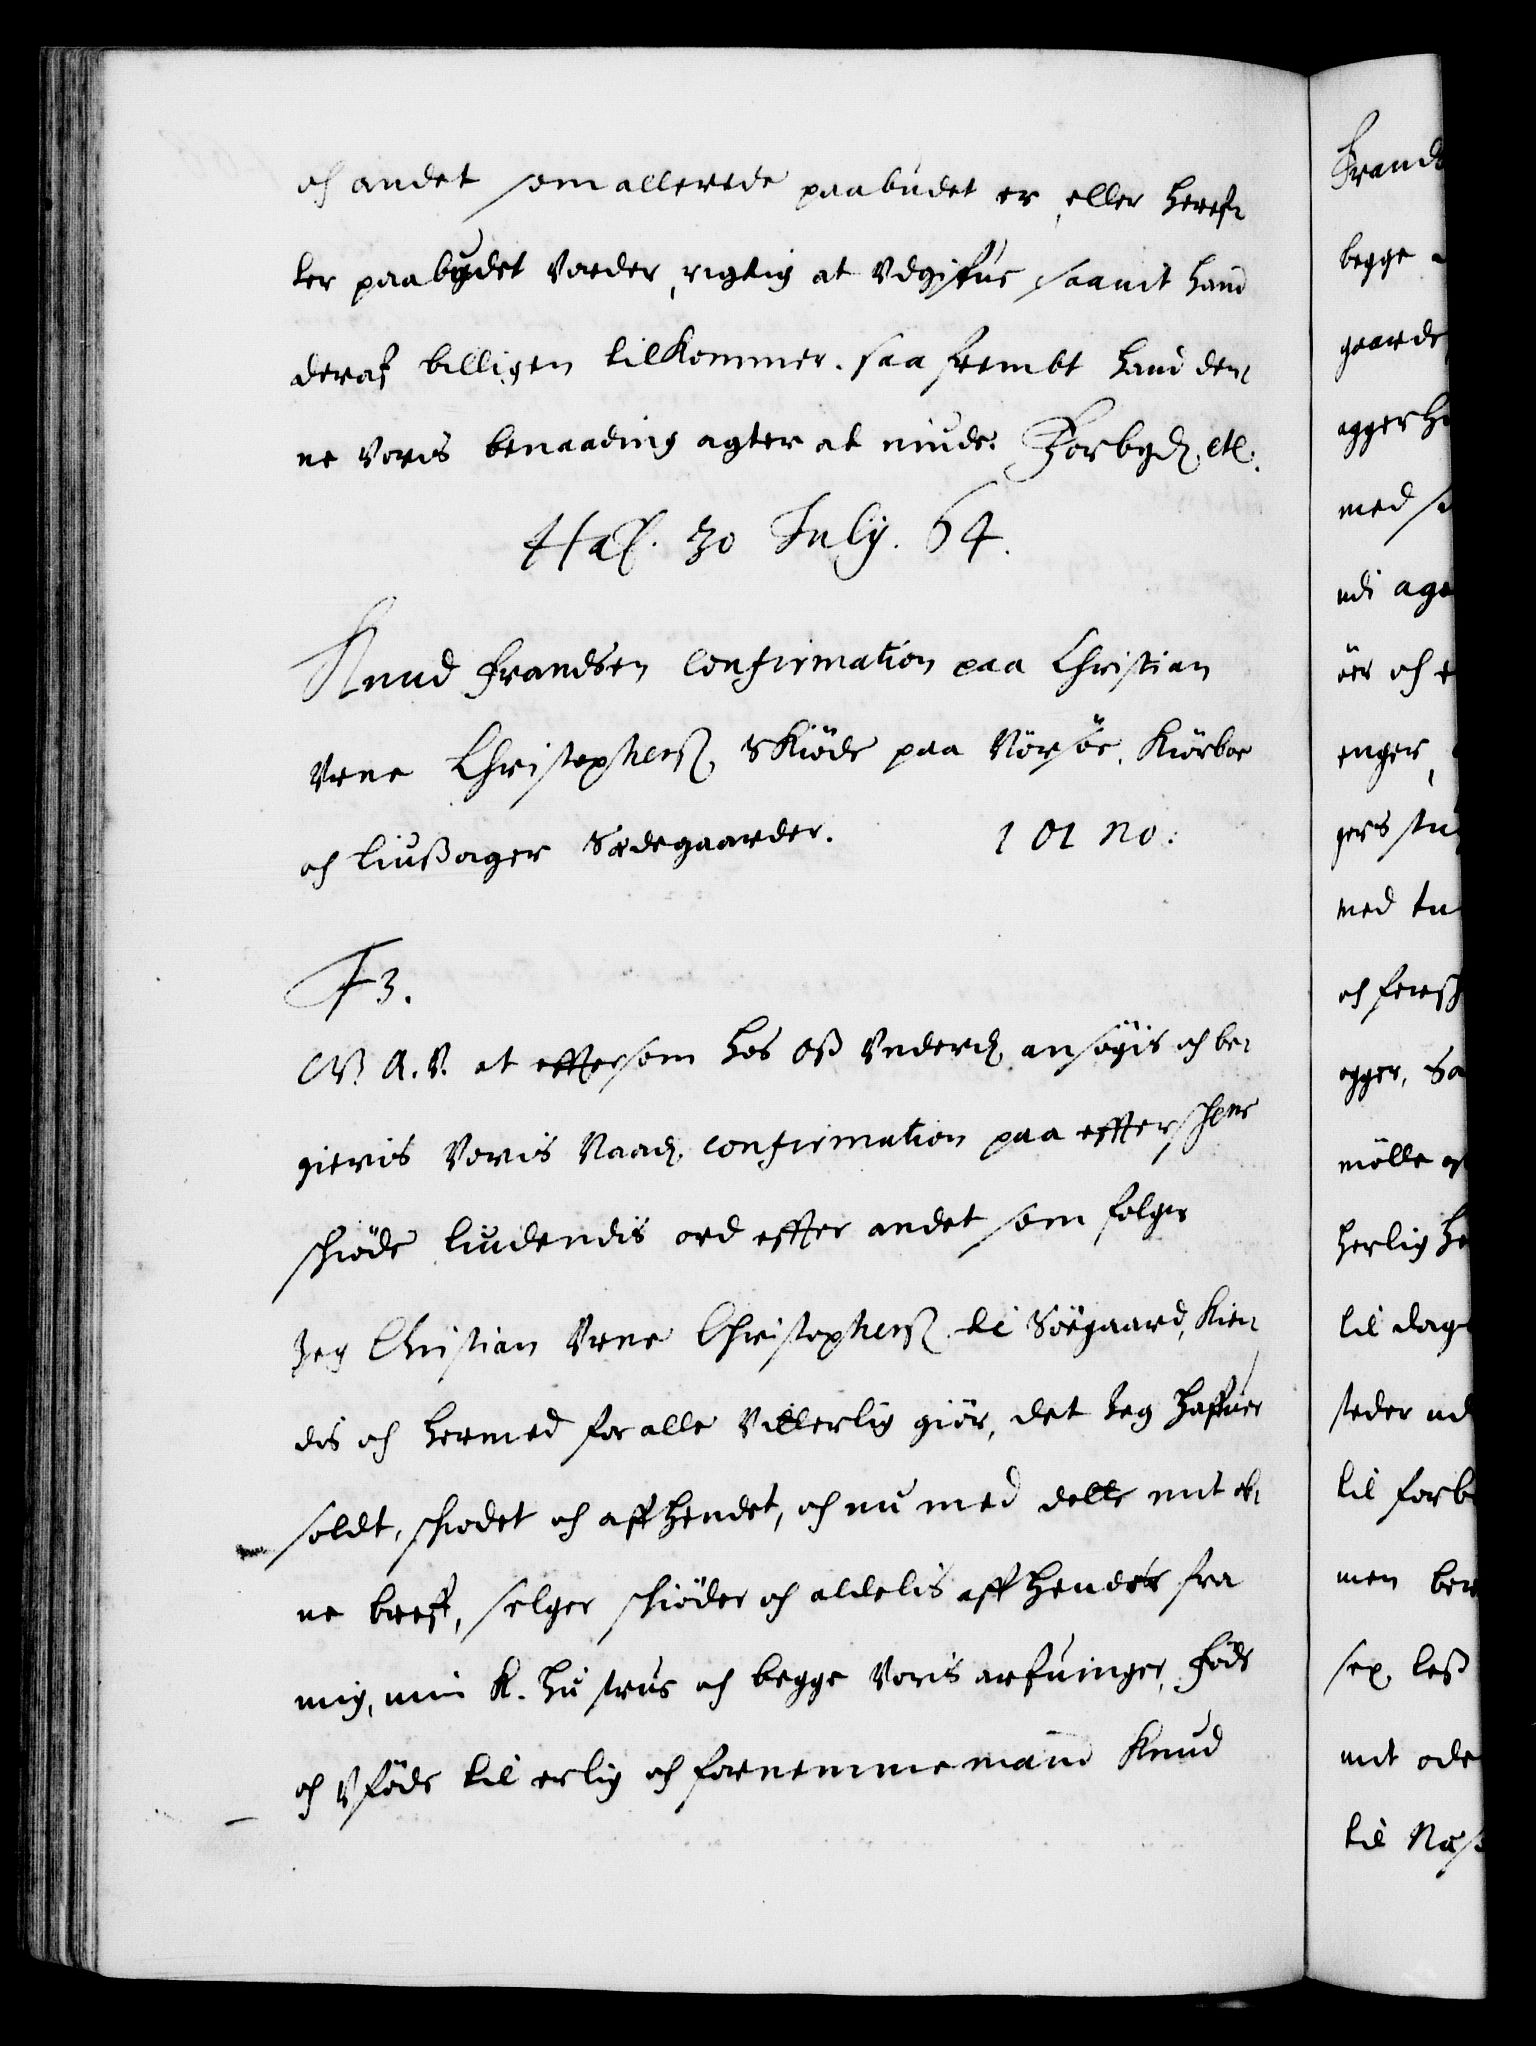 och andet som allerede paabudet er, eller heref-
ter paabydet vorder, rigtig at vdgifue saauit hand
deraf billigen tilkommer. saa frembt hand den-
ne voris benaading agter at niude. Forbyd. etc.
Haf. 30 July. 64.
Knud frandsen confirmation paa Christian
Vrne Christophers. Skiöde paa Nörsöe, Kiörboe
och liusager Sædegaarder. 101 no:
F3.
G. A. V. at effersom hos oss vnderd. ansögis och be-
gieris voris Naad. confirmation paa effterschrne
schiöde liudendis ord effter andet som fölger
Jeg Christian Vrne Christophers. til Söegaard, Kien-
dis och hermed for alle vitterlig giör, det Jeg haffuer
soldt, schödet och affhendet, och nu med dette mit ob-
ne breff, selger schiöder och aldelis affhender fra
mig, min K. hustrus och begge voris arfuinger, föde
och vföde til erlig och fornemme mand Knud
Frands
begge
gaarde
agger
med
udi
öer och
enger,
gers
med
och
agger,
mölle
herlig
til
steder
til
men
sex. less
mit
til